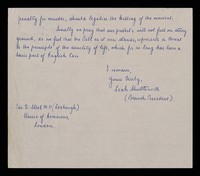 penalty for murder, should legalise the killing of the unwanted.
Finally we pray that our protest will not fall on stony
ground, as we feel that the Bill as it now stands, represents a threat
to the principle of the sanctity of life, which for so long has been a
basic part of English Law.
I remain,
Yours truly,
(Branch President)
M.P.
House of Commons,
London.